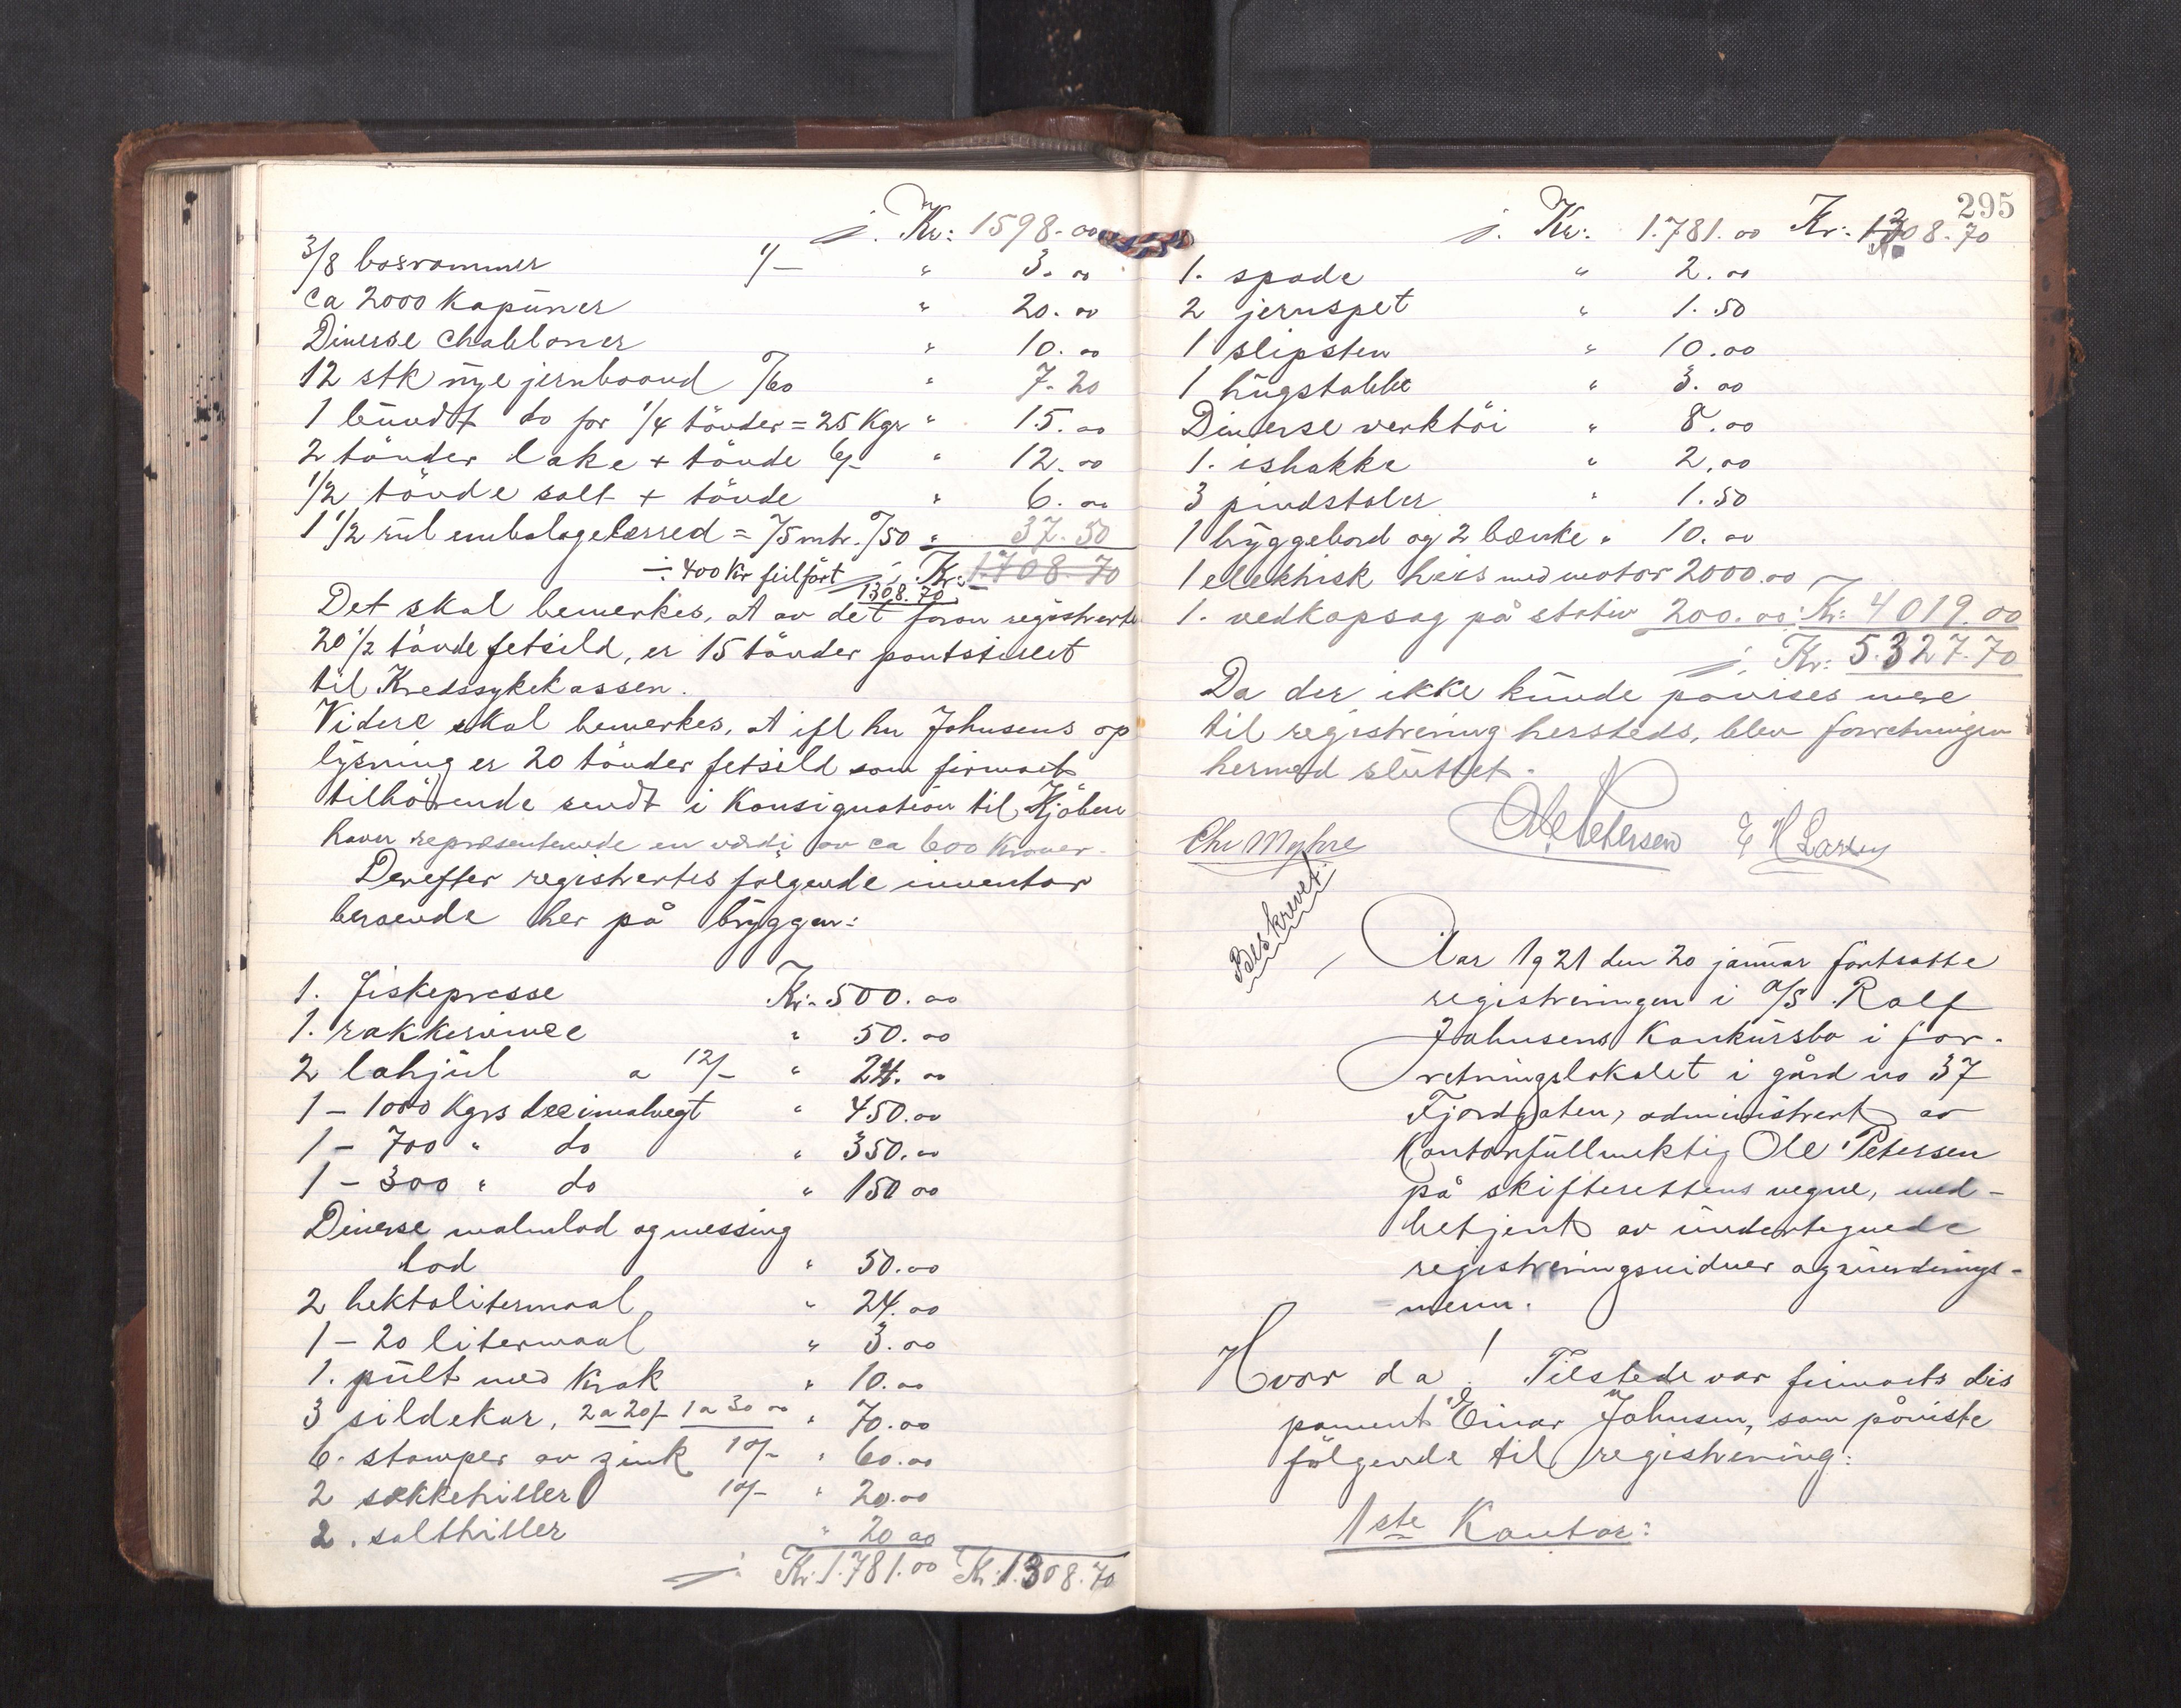 ÷ Kr: 1598.00
3/8 bosrammer 1/- " 3.00
ca 2000 Kapüner " 20.00
Diverse Chabloner " 10.00
12 stk nÿe jernbaand /60 " 7.20
1 bündt do for 1/4 tönder = 25 Kgr " 15.00
2 tönder lake + tönde 6/- " 12.00
1/2 tönde salt + tönde " 6.00
1 1/2 rül embalagelærred = 75 mtr. /50 " 37.50
÷ 400 Kr feilfört Kr: 1708.70
1308.70
Det skal bemerkes, at av det foran registrerte
20 1/2 tönde fetsild, er 15 tönder pantstillet
til Kredssykekassen.
Videre skal bemerkes, at ifl hr Johnsens op
lÿsning er 20 tönder fetsild som firmaet
tilhörende sendt i Konsignation til Kjöben
havn repræsenterende en værdi av ca 600 Kroner.
Derefter registrertes fölgende inventar
beroende her på brÿggen:
1. fiskepresse Kr. 500.00
1. rakkerivinee " 50.00
2 lahjül a 12/- " 24.00
1 - 1000 Kgrs decimalvegt " 450.00
1 - 700 " do " 350.00
1 - 300 " do " 150 00
Diverse malmlod og messing
lod " 50.00
2 hektolitermaal " 24.00
1 - 20 litermaal " 3.00
1. pült med Krak " 10.00
3 sildekar, 2 a 20/- 1 a 30 00 " 70.00
6. stamper av zink 10/- " 60.00
2 sækkehiller 10/- " 20.00
2. salthiller " 20 00
÷ Kr. 1.781.00 Kr. 1.308.70
295
÷ Kr: 1.781.00 Kr: 1308.70
1. spade " 2.00
2 jernspet " 1.50
1 slipsten " 10.00
1 hügstabbe " 3.00
Diverse verktöi " 8.00
1. ishakke " 2.00
3 pindstoler " 1.50
1 brÿggebord og 2 bænke " 10.00
1 elektrisk heis med motor 2000.00
1. vedkapsag på stativ 200.00 Kr: 4019.00
÷ Kr: 5.327.70
Da der ikke künde påvises mere
til registrering hersteds, blev forretningen
hermed slüttet.
Chr Myhre Ole Petersen E H Larsen
Beskrevet.
Aar 1921 den 20 janüar fortsatte
registreringen i A/S Rolf
Johnsens Konkürsbo i for-
retningslokalet i gård no 37
Fjordgaten, administrert av
Kontorfüllmektig Ole Petersen
på skifterettens vegne, med-
betjent av ündertegnede
registreringsvidner og vürderings-
menn.
Hvor da! Tilstede var firmaets dis
ponent Einar Johnsen, som påviste
fölgende til registrering:
1ste Kontor: